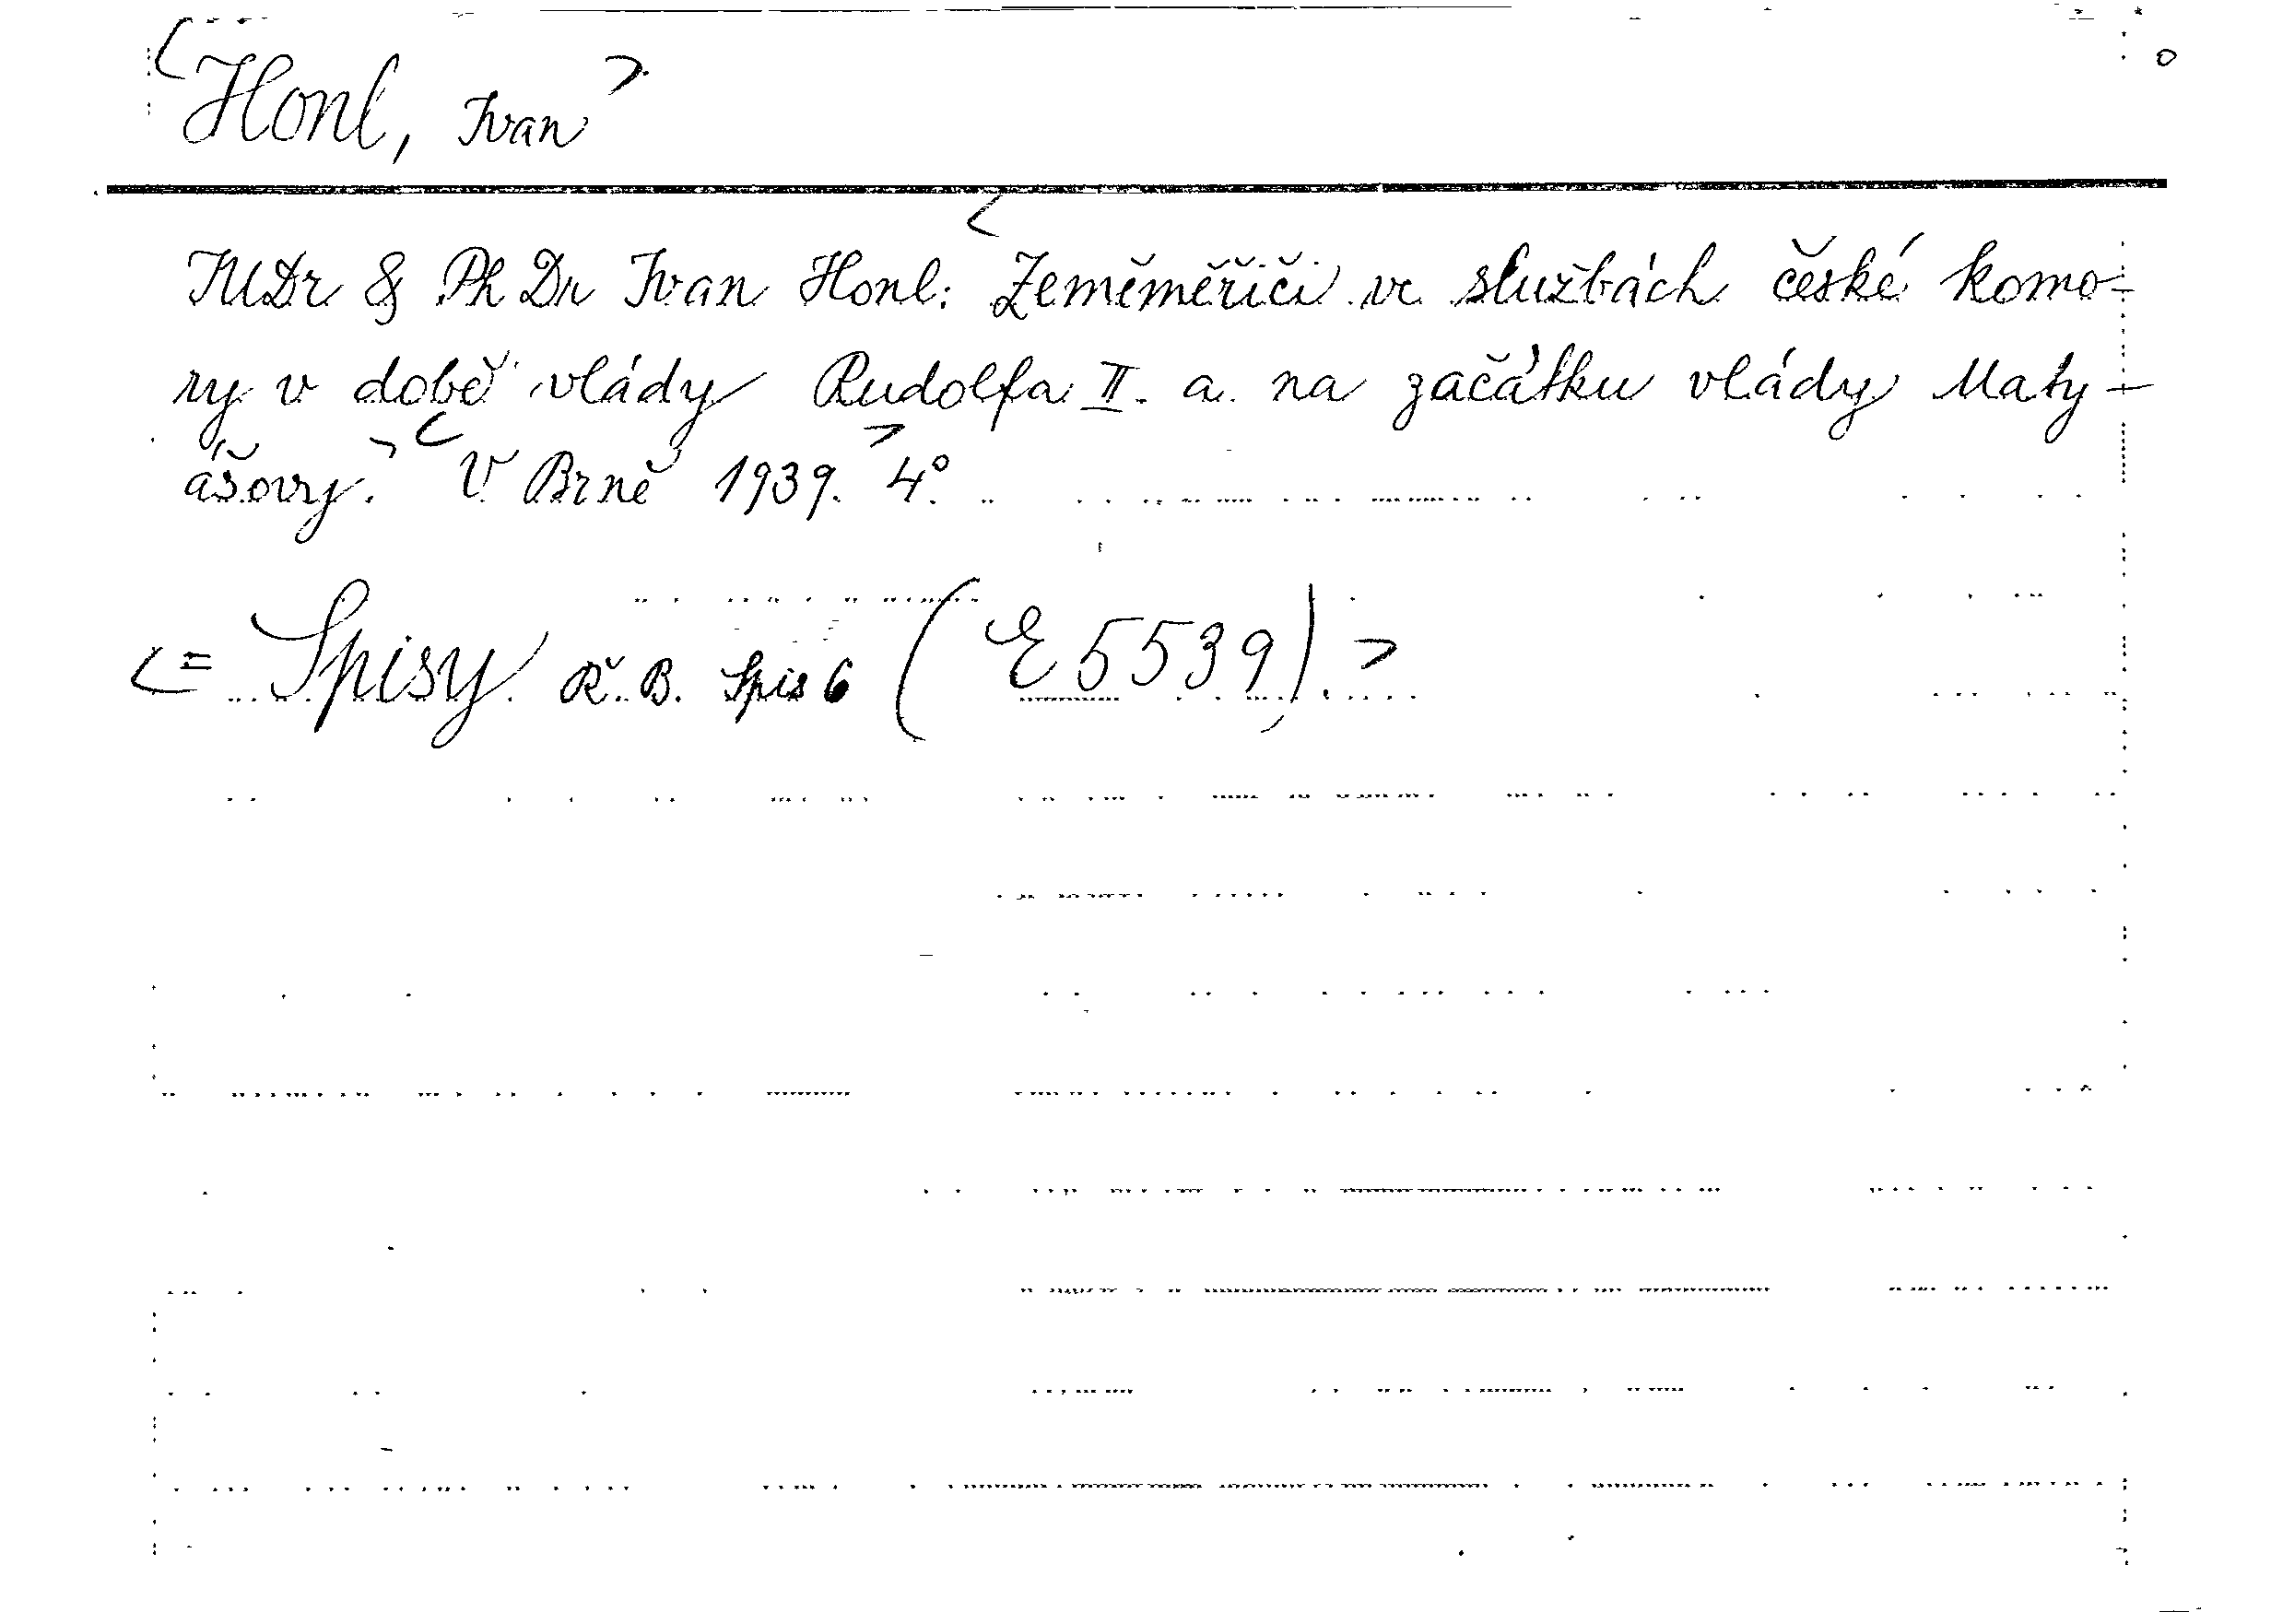 <Honl, Ivan>
JUDr & PhDr Ivan Honl: <Zeměměřiči ve službách české komo-
ry v době vlády Rudolfa II. a na začátku vlády Maty-
ášovy.> <V Brně 1939.> 4°.
<= Spisy Ř. B. Spis 6 (E 5539).>